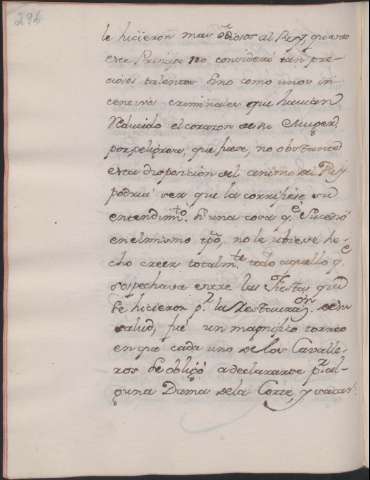 296
le hicieron mas odioso al Rey, quanto
este Principe no considerò tan pre-
ciosos talentos sino como unos in-
centivos criminales que havian
seducido el corazon de su Muger.
por peligrosa, que fuese, no obstante
esta disposicion del animo del Rey
podria ser que la corrigiese su
entendim.to si una cosa q.e sucediò
en el mismo tpô, no le hubiese he-
cho creer totalm.te todo aquello q.e
sospechava entre las Fiestas que
se hicieron p.r la Restauraz.on de su
salud, fue un magnifico torneo
en que cada uno de los Cavalle-
ros se obligò a declararse p.r al-
guna Dama de la Corte, y